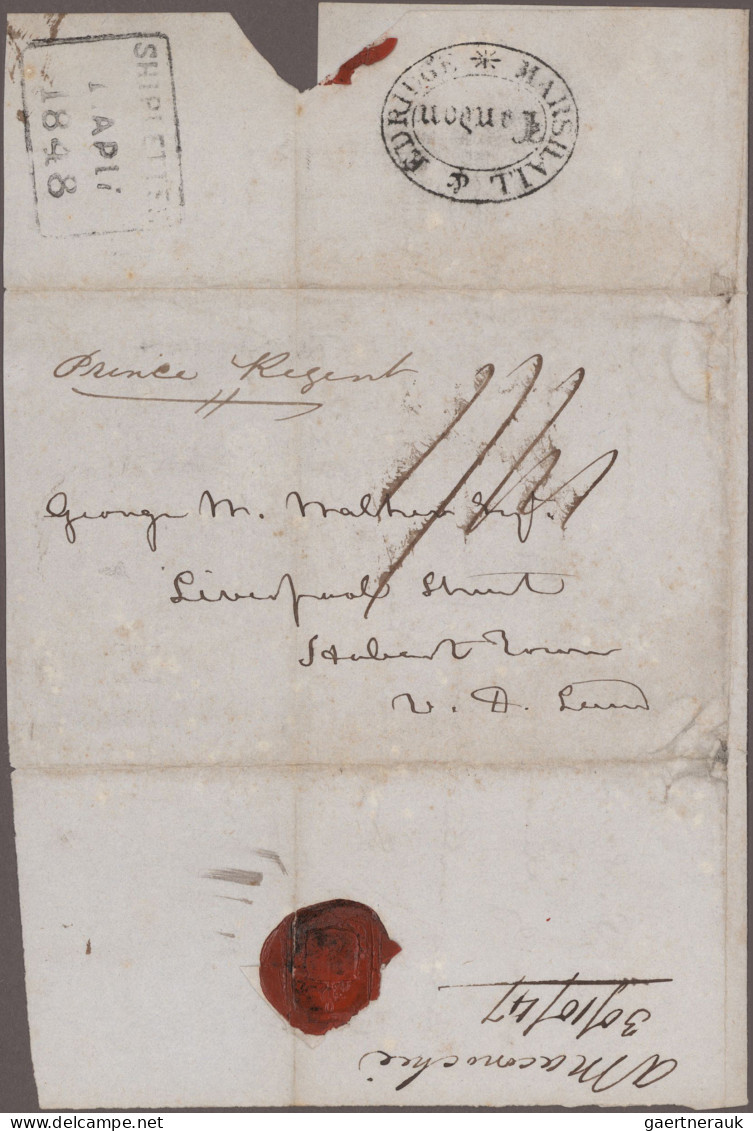 SHIP LETTER
AP
1848
MARSHALL & EDRIDGE
London
Prince Regent
George M. Esq.
Liverpool Street
Hobart Town
V. D. Land
30/10/47
A Maconochie
gaertnerauk